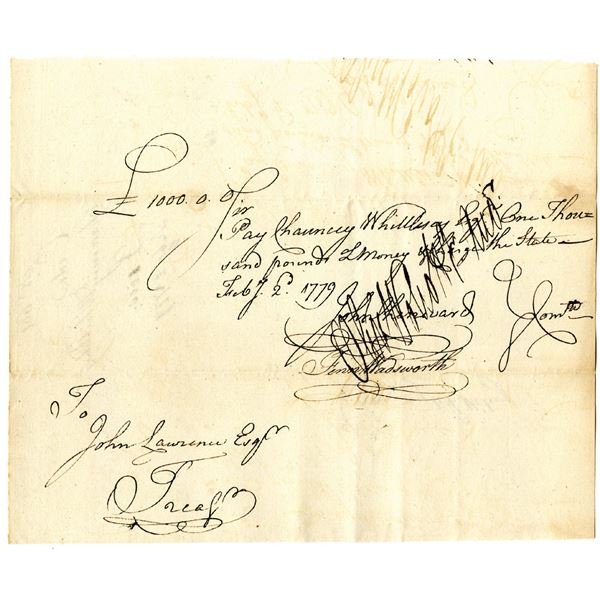 £ 1000. 0. 0/ Sir
Pay Chauncey Whittlesey Esqr. One Thou=
sand pounds L Money & Charge the State
Feby. 2d. 1779
John Chenevard
Comtte
Fenn Wadsworth
To
John Lawrence Esqr
Treasr